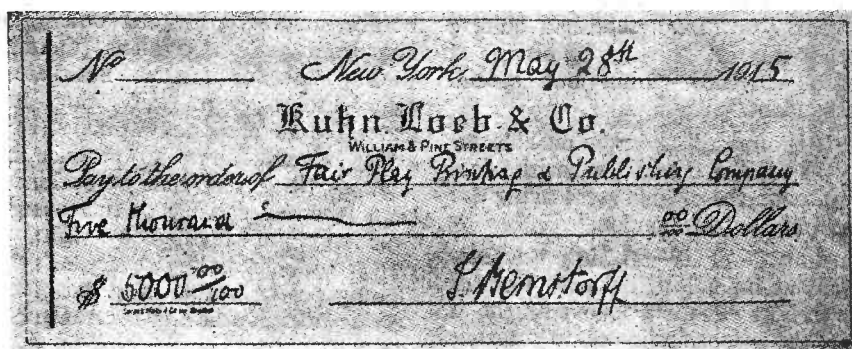 No New York, May 28th 1915
Kuhn, Loeb & Co.
WILLIAM & PINE STREETS
Pay to the order of Fair Play Printing & Publishing Company
Five thousand 00/100 Dollars
$ 5000 00/100 J. Bernstorff